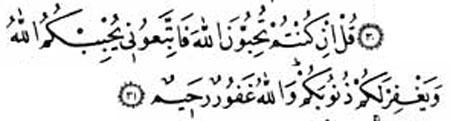 ٣٠ قُلْ اِنْ كُنْتُمْ تُحِبُّوْنَ اللهَ فَاتَّبِعُوْنِيْ يُحْبِبْكُمُ اللهُ
وَيَغْفِرْ لَكُمْ ذُنُوْبَكُمْ ۗ وَاللهُ غَفُوْرٌ رَّحِيْمٌ ٣١